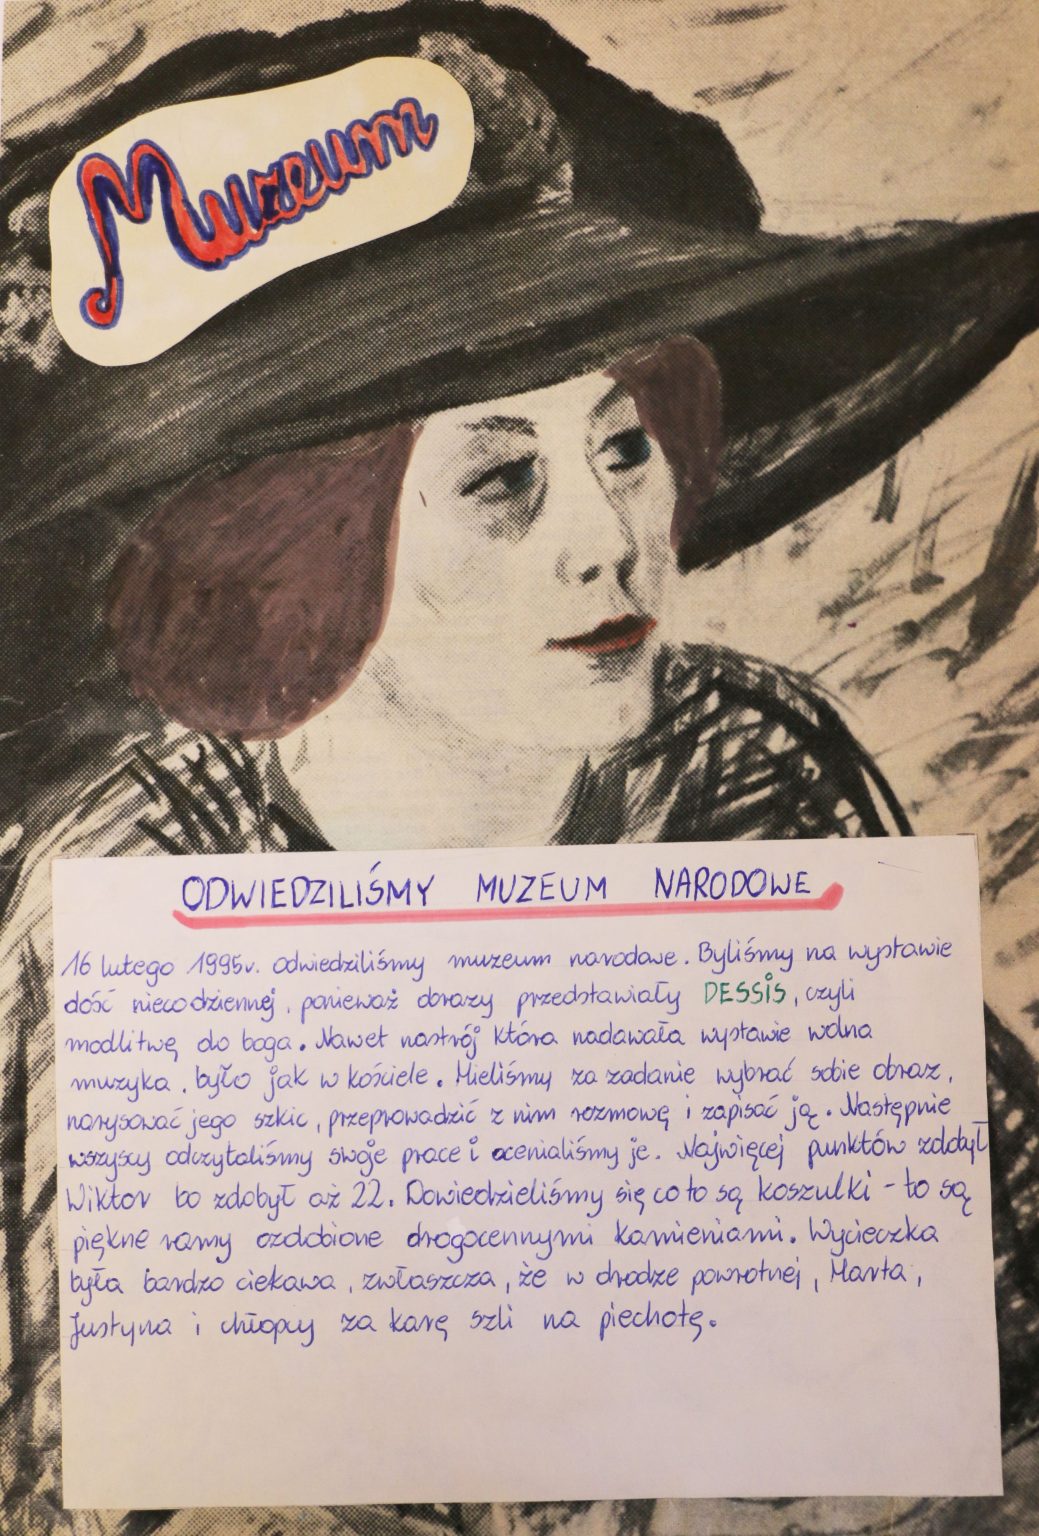 Muzeum
ODWIEDZILIŚMY MUZEUM NARODOWE
16 lutego 1995r. odwiedziliśmy muzeum narodowe. Byliśmy na wystawie
dość niecodziennej, ponieważ obrazy przedstawiały DESSIS, czyli
modlitwę do boga. Nawet nastrój która nadawała wystawie wolna
muzyka, było jak w kościele. Mieliśmy za zadanie wybrać sobie obraz,
narysować jego szkic, przeprowadzić z nim rozmowę i zapisać ją. Następnie
wszyscy odczytaliśmy swoje prace i ocenialiśmy je. Najwięcej punktów zdobył
Wiktor bo zdobył aż 22. Dowiedzieliśmy się co to są koszulki - to są
piękne ramy ozdobione drogocennymi kamieniami. Wycieczka
była bardzo ciekawa, zwłaszcza, że w drodze powrotnej, Marta,
Justyna i chłopcy za karę szli na piechotę.